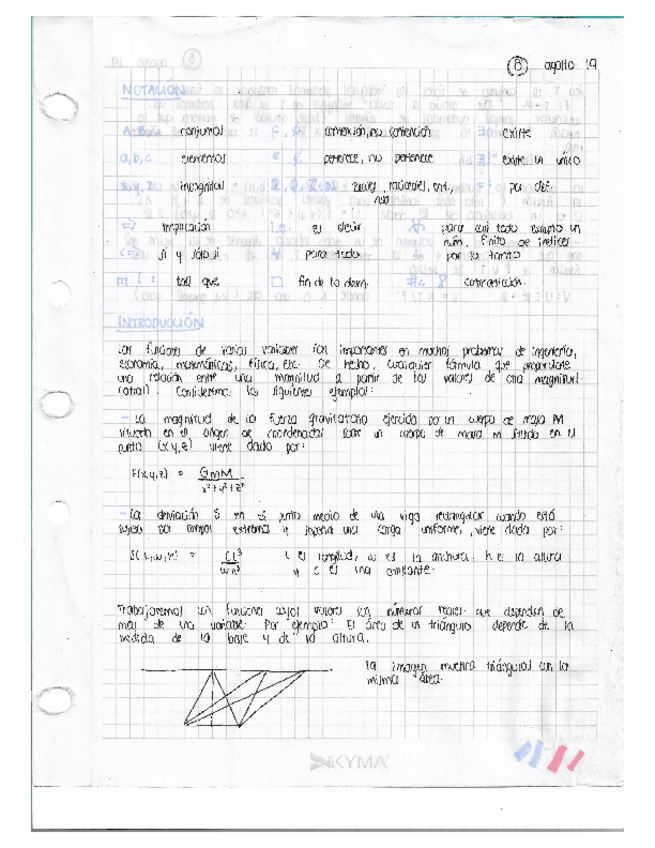 8 agosto 19
NOTACIÓN
A, B, C conjuntos ⊂, ⊄ contención, no contención ∃ existe
a, b, c elementos ∈ ∉ pertenece, no pertenece ∃! existe un único
x, y, z incognitas R, Q, Z, N reales, racionales, ent., := por def.
nat
⇒ implicación i.e. es decir para casi todo excepto un
núm. finito de índices
⇔ si y sólo si ∀ para todo por lo tanto
: tal que □ fin de la dem. contradicción.
INTRODUCCIÓN
Las funciones de varias variables son importantes en muchos problemas de ingeniería,
economía, matemáticas, física, etc. De hecho, cualquier fórmula que proporcione
una relación entre una magnitud a partir de los valores de otra magnitud
(otras). Consideremos los siguientes ejemplos:
- La magnitud de la fuerza gravitatoria ejercida por un cuerpo de masa M
situado en el origen de coordenadas sobre un cuerpo de masa m situado en el
punto (x,y,z) viene dado por:
F(x,y,z) = GmM
x²+y²+z²
- La desviación S en el punto medio de una viga rectangular cuando está
sujeta por ambos extremos y soporta una carga uniforme, viene dada por:
S(L,w,h) = CL³ L es longitud, w es la anchura, h es la altura
wh³ y C es una constante.
Trabajaremos con funciones cuyos valores son números reales que dependen de
más de una variable. Por ejemplo: El área de un triángulo depende de la
medida de la base y de la altura.
La imagen muestra triángulos con la
misma área.
KYMA